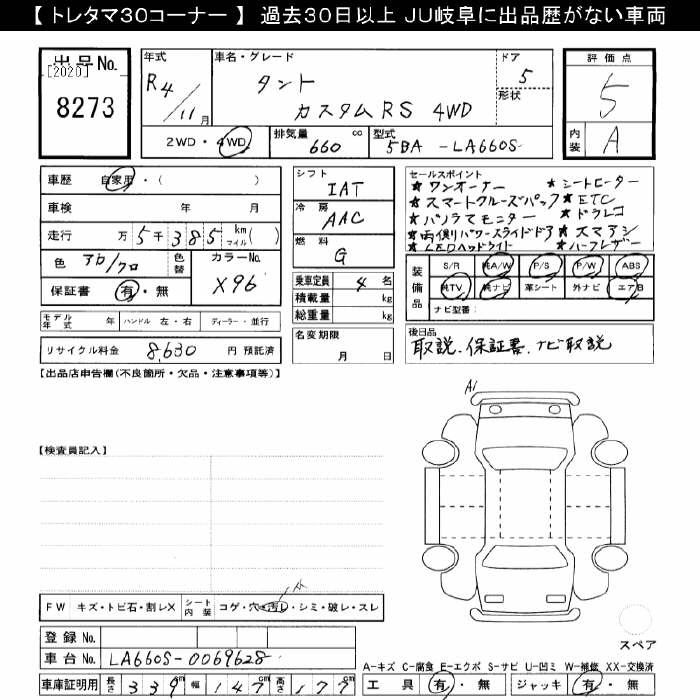 【 トレタマ30コーナー 】 過去30日以上 JU岐阜に出品歴がない車両
出品No.
[2020]
8273
年式
R4/11月
車名・グレード
タント
カスタムRS 4WD
ドア
5
形状
評価点
5
内装
A
2WD・4WD
排気量
660
cc
型式
5BA -LA660S-
車歴
自家用・( )
車検
年 月
走行
万 5千 385 km マイル( )
色
アカ/クロ
色替
カラーNo.
X96
保証書
有・無
モデル年式
年
ハンドル 左・右
ディーラー・並行
リサイクル料金
8,630
円 預託済
シフト
IAT
冷房
AAC
燃料
G
乗車定員
4 名
積載量
kg
総重量
kg
名変期限
月 日
セールスポイント
★ワンオーナー ★シートヒーター
★スマートクルーズパック ★ETC
★パノラマモニター ★ドラレコ
★両側パワースライドドア ★スマアシ
★LEDヘッドライト ★ハーフレザー
装備品
S/R 純A/W P/S P/W ABS
純TV 純ナビ 革シート 外ナビ エアB
ナビ型番:
後日品
取説、保証書、ナビ取説
【出品店申告欄(不良箇所・欠品・注意事項等)】
A1
【検査員記入】
FW キズ・トビ石・割レX
シート内装 コゲ・穴・汚レ・シミ・破レ・スレ
スペア
登録 No.
車台 No.
LA660S-0069628
A-キズ C-腐食 E-エクボ S-サビ U-凹ミ W-補修 XX-交換済
車庫証明用
長さ 339 幅 147 高さ 177
cm cm cm
工具 有・無
ジャッキ 有・無